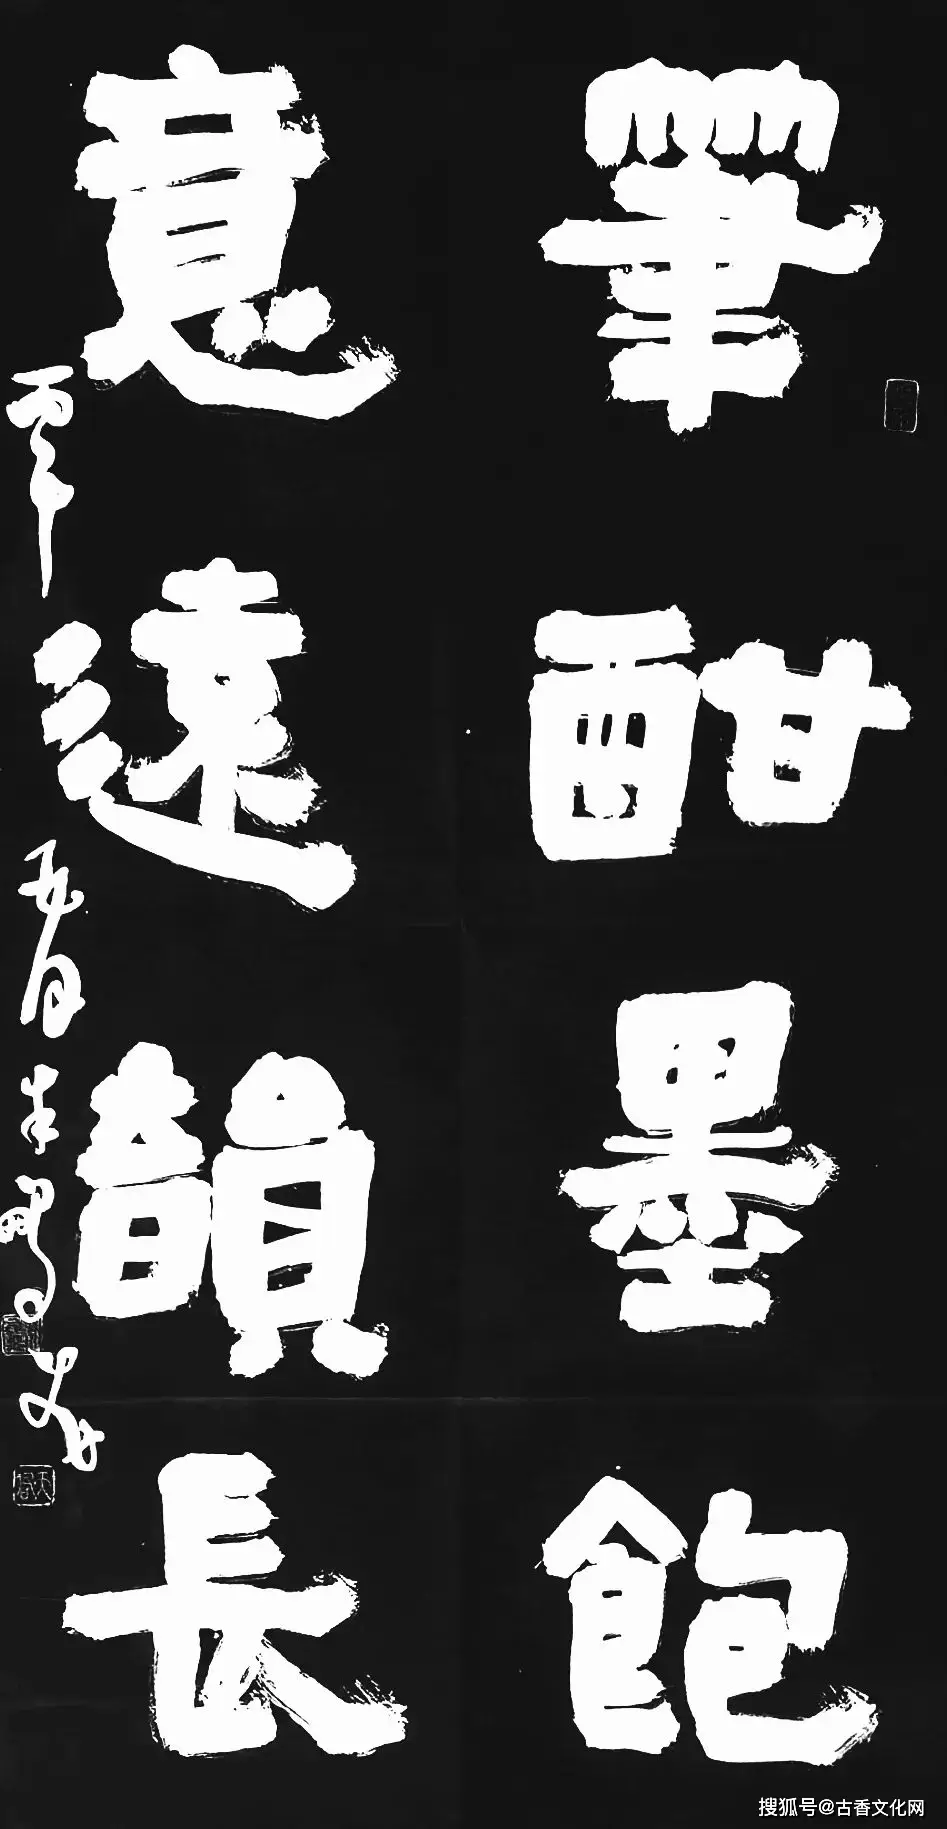 筆酣墨飽
意遠韻長
五月
搜狐号@古香文化网